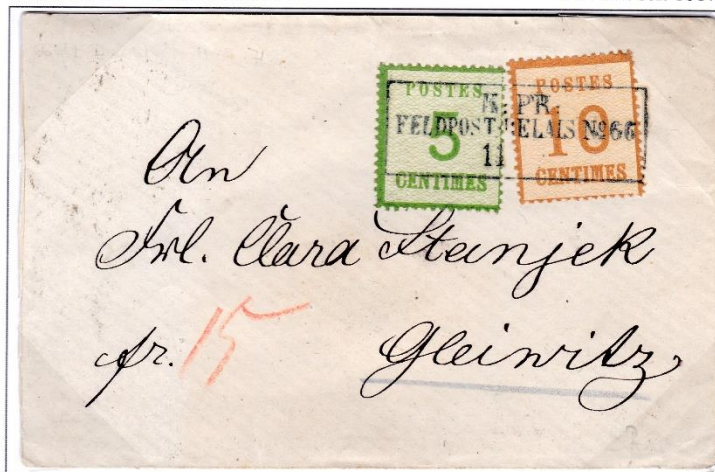 POSTES
5
CENTIMES
POSTES
10
CENTIMES
K. PR.
FELDPOST-RELAIS No 66
11
An
Frl. Clara Stanjek
fr. 15
Gleiwitz